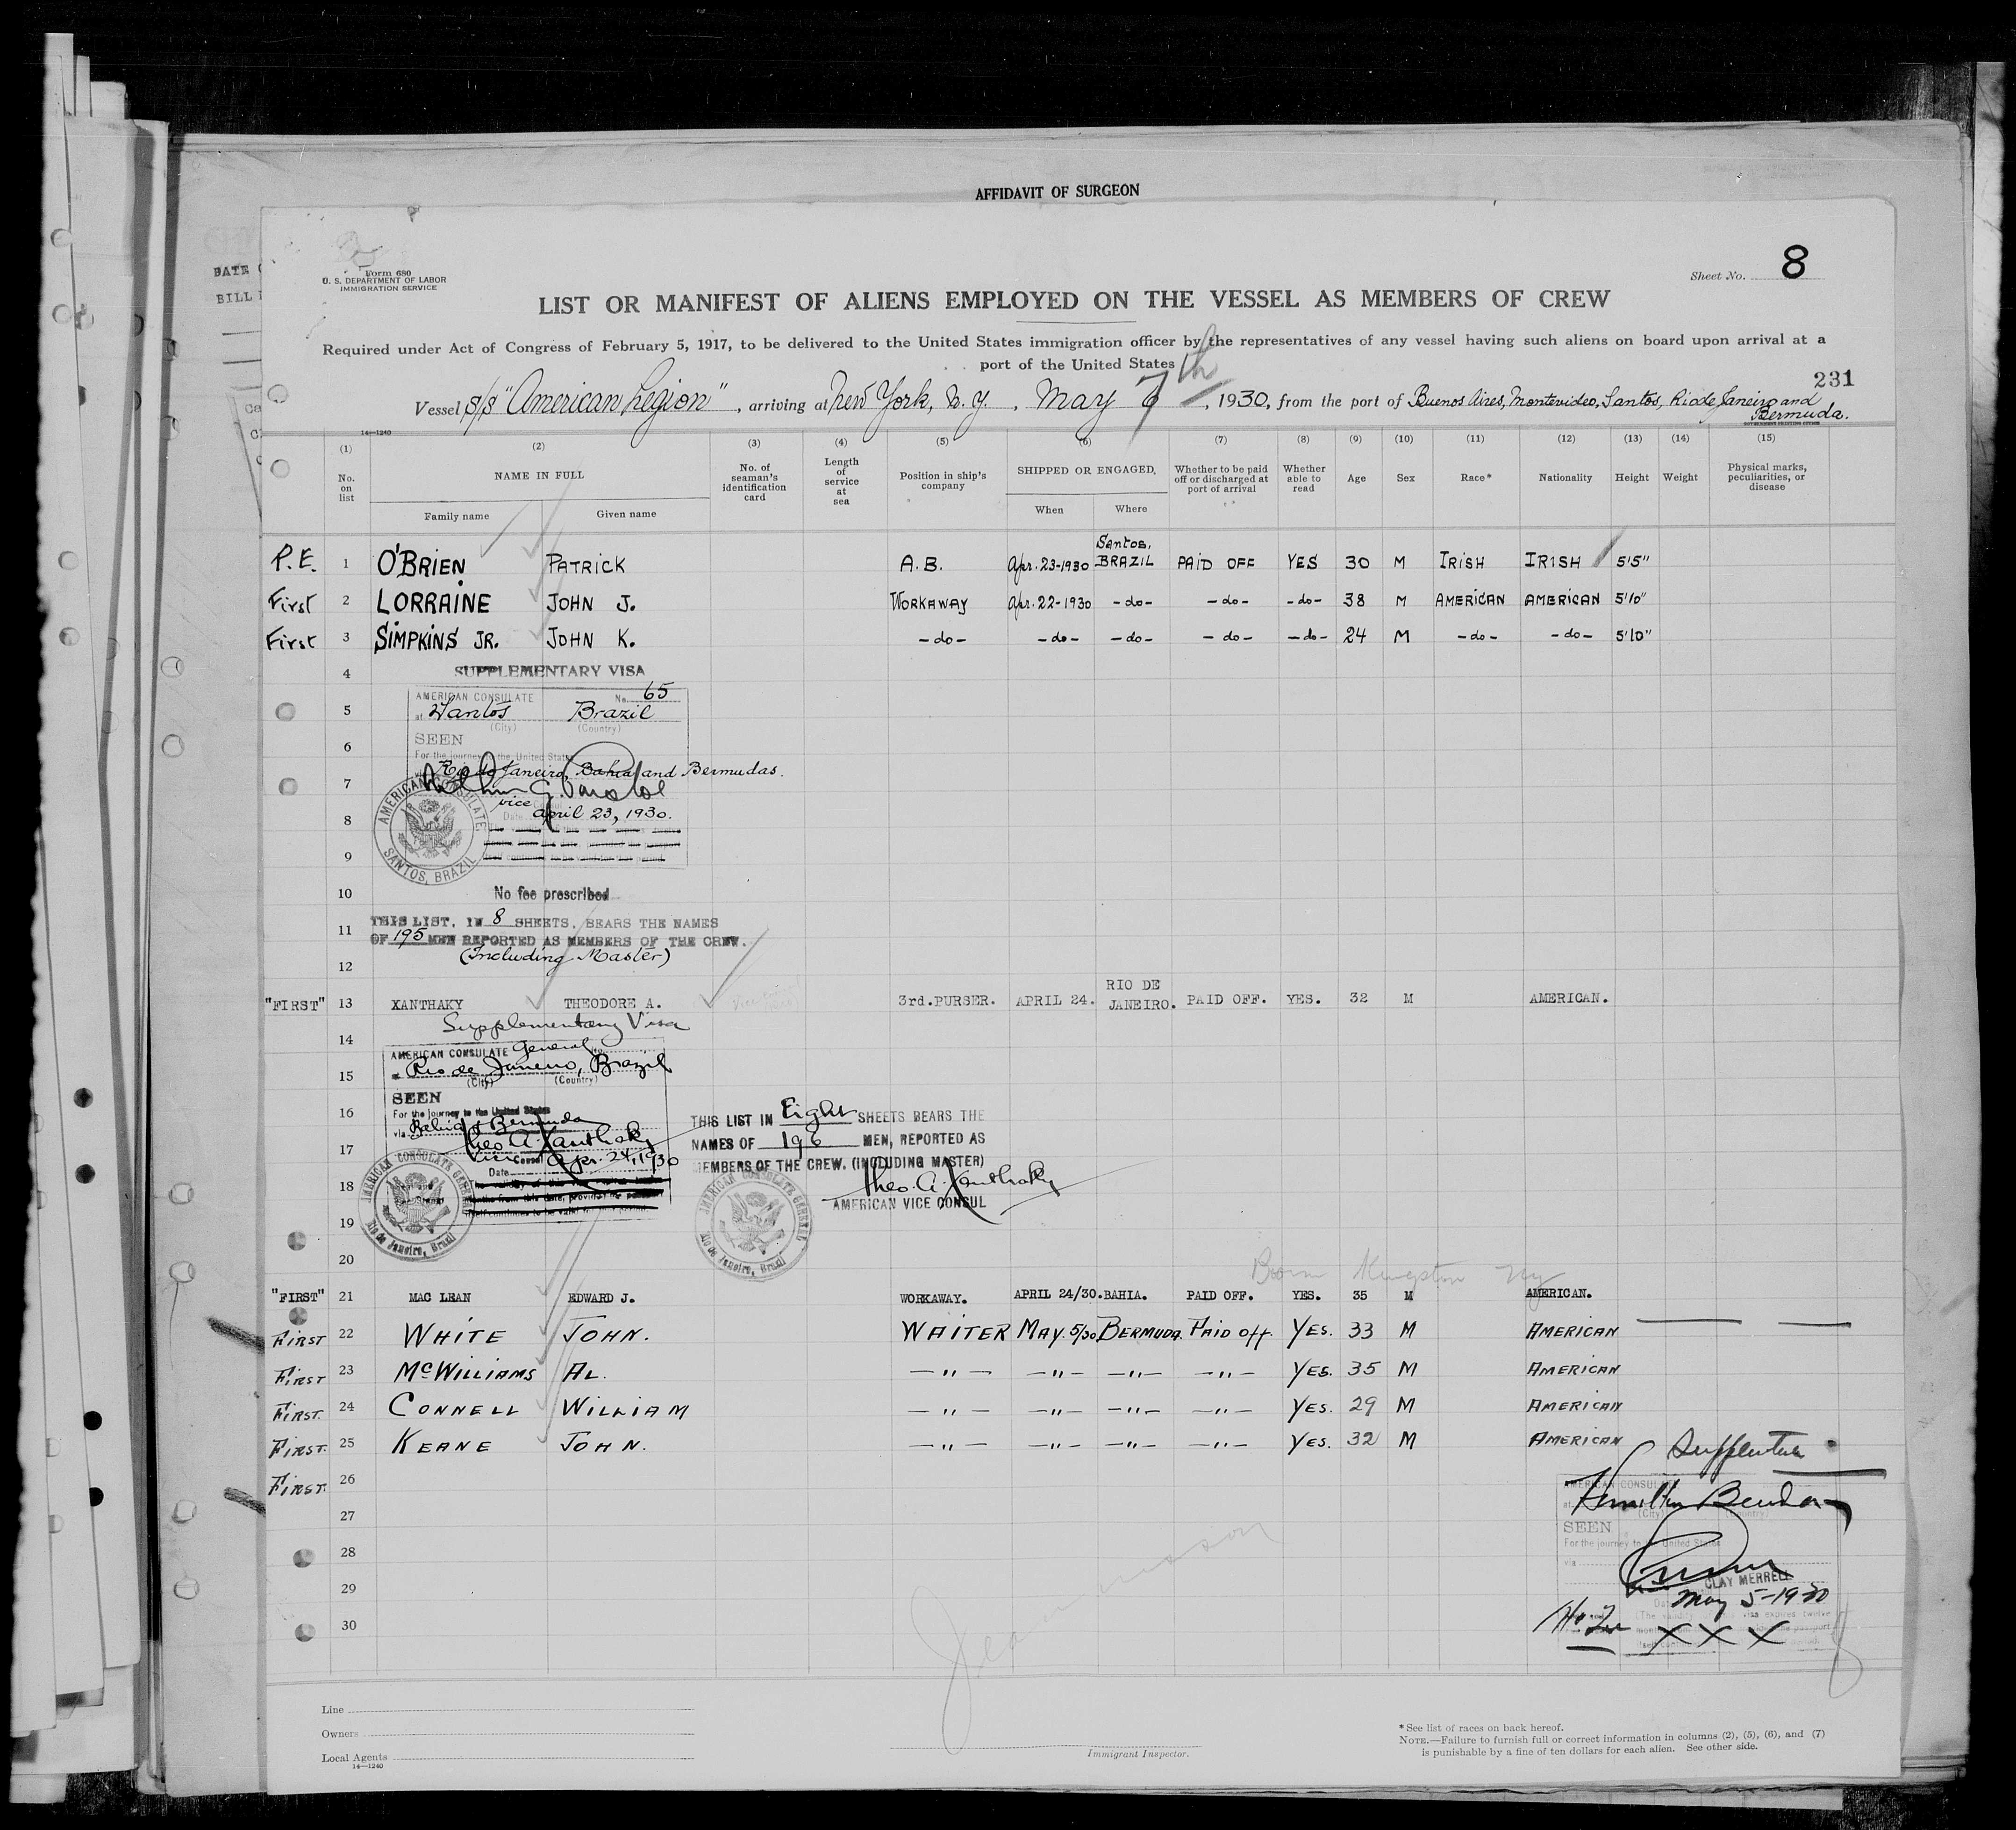 AFFIDAVIT OF SURGEON
Form 680
U. S. DEPARTMENT OF LABOR
IMMIGRATION SERVICE
Sheet No. 8
LIST OR MANIFEST OF ALIENS EMPLOYED ON THE VESSEL AS MEMBERS OF CREW
Required under Act of Congress of February 5, 1917, to be delivered to the United States immigration officer by the representatives of any vessel having such aliens on board upon arrival at a
port of the United States
231
Vessel S/S "American Legion", arriving at New York, N.Y., May 7th, 1930, from the port of Buenos Aires, Montevideo, Santos, Rio de Janeiro and
Bermuda.
14—1240
(1) (2) (3) (4) (5) (6) (7) (8) (9) (10) (11) (12) (13) (14) (15)
No. on list NAME IN FULL Family name Given name No. of seaman's identification card Length of service at sea Position in ship's company SHIPPED OR ENGAGED. When Where Whether to be paid off or discharged at port of arrival Whether able to read Age Sex Race* Nationality Height Weight Physical marks, peculiarities, or disease
P.E. 1 O'BRIEN PATRICK A.B. Apr. 23-1930 Santos, BRAZIL PAID OFF YES 30 M IRISH IRISH 5'5"
First 2 LORRAINE JOHN J. WORKAWAY Apr. 22-1930 -do- -do- -do- 38 M AMERICAN AMERICAN 5'10"
First 3 SIMPKINS JR. JOHN K. -do- -do- -do- -do- -do- 24 M -do- -do- 5'10"
4 SUPPLEMENTARY VISA
AMERICAN CONSULATE No. 65
5 at Santos Brazil
(City) (Country)
6 SEEN
For the journey to the United States
7 Rio de Janeiro, Bahia and Bermudas.
vice
8 Date April 23, 1930.
AMERICAN CONSULATE SANTOS, BRAZIL
9
10 No fee prescribed
11 THIS LIST, IN 8 SHEETS, BEARS THE NAMES
OF 195 MEN REPORTED AS MEMBERS OF THE CREW.
(Including Master)
12
"FIRST" 13 XANTHAKY THEODORE A. 3rd.PURSER. APRIL 24. RIO DE JANEIRO. PAID OFF. YES. 32 M AMERICAN.
Supplementary Visa
14 AMERICAN CONSULATE General No.
15 at Rio de Janeiro, Brazil
(City) (Country)
SEEN
16 For the journey to the United States
via Bahia & Bermuda
17 Theo. A. Xanthaky
Vice Consul
Date Apr. 24, 1930
18
AMERICAN CONSULATE GENERAL Rio de Janeiro, Brazil
THIS LIST IN Eight SHEETS BEARS THE
NAMES OF 196 MEN, REPORTED AS
MEMBERS OF THE CREW. (INCLUDING MASTER)
Theo. A. Xanthaky
AMERICAN VICE CONSUL
AMERICAN CONSULATE GENERAL Rio de Janeiro, Brazil
19
20
Born Kingston NY
"FIRST" 21 MAC LEAN EDWARD J. WORKAWAY. APRIL 24/30. BAHIA. PAID OFF. YES. 35 M AMERICAN.
FIRST 22 WHITE JOHN. WAITER MAY. 5/30 BERMUDA. PAID Off. YES. 33 M AMERICAN
FIRST 23 McWILLIAMS AL. —"— —"— —"— —"— YES. 35 M AMERICAN
FIRST. 24 CONNELL WILLIAM —"— —"— —"— —"— YES. 29 M AMERICAN
FIRST. 25 KEANE JOHN. —"— —"— —"— —"— YES. 32 M AMERICAN
FIRST. 26
27
28
29
30
AMERICAN CONSULATE
(City) (Country)
SEEN
For the journey to the United States
via
CLAY MERRELL
May 5-1930
No Fee XXX
Line
Owners
Local Agents
14—1240
Immigrant Inspector.
* See list of races on back hereof.
NOTE.—Failure to furnish full or correct information in columns (2), (5), (6), and (7)
is punishable by a fine of ten dollars for each alien. See other side.